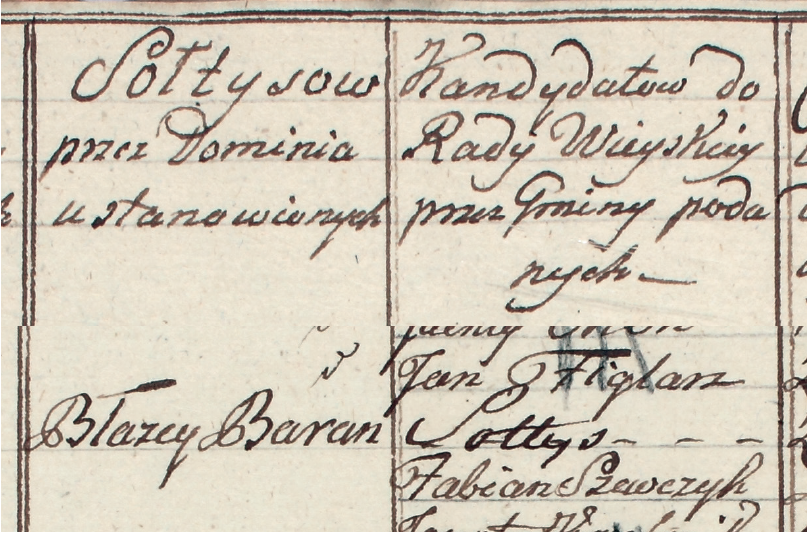 Sołtysow
przez Dominia
ustanowionych
Kandydatow do
Rady Wieyskiey
przez Gminy poda
nych —
Błazey Baran
Jan Figlarz
Sołtys - - -
Fabian Szewczyk